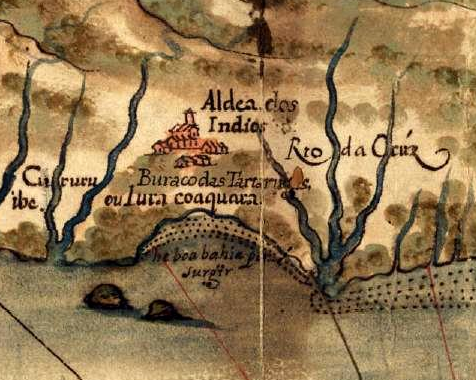 Aldea dos
Indios
Rio da Crúz
Cururu
ibe.
Buraco das Tartarugas,
ou Iura coaquara
he boa bahia p
Surgir